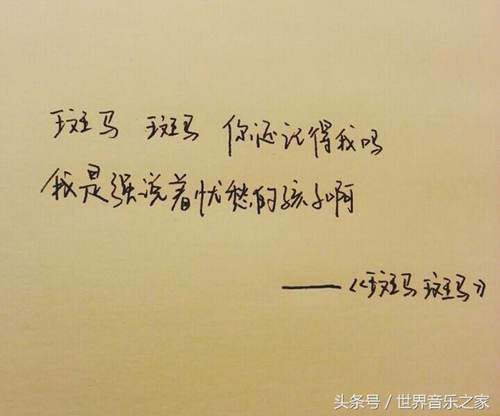 斑马 斑马 你还记得我吗
我是强说着忧愁的孩子啊
——《斑马斑马》
头条号 / 世界音乐之家